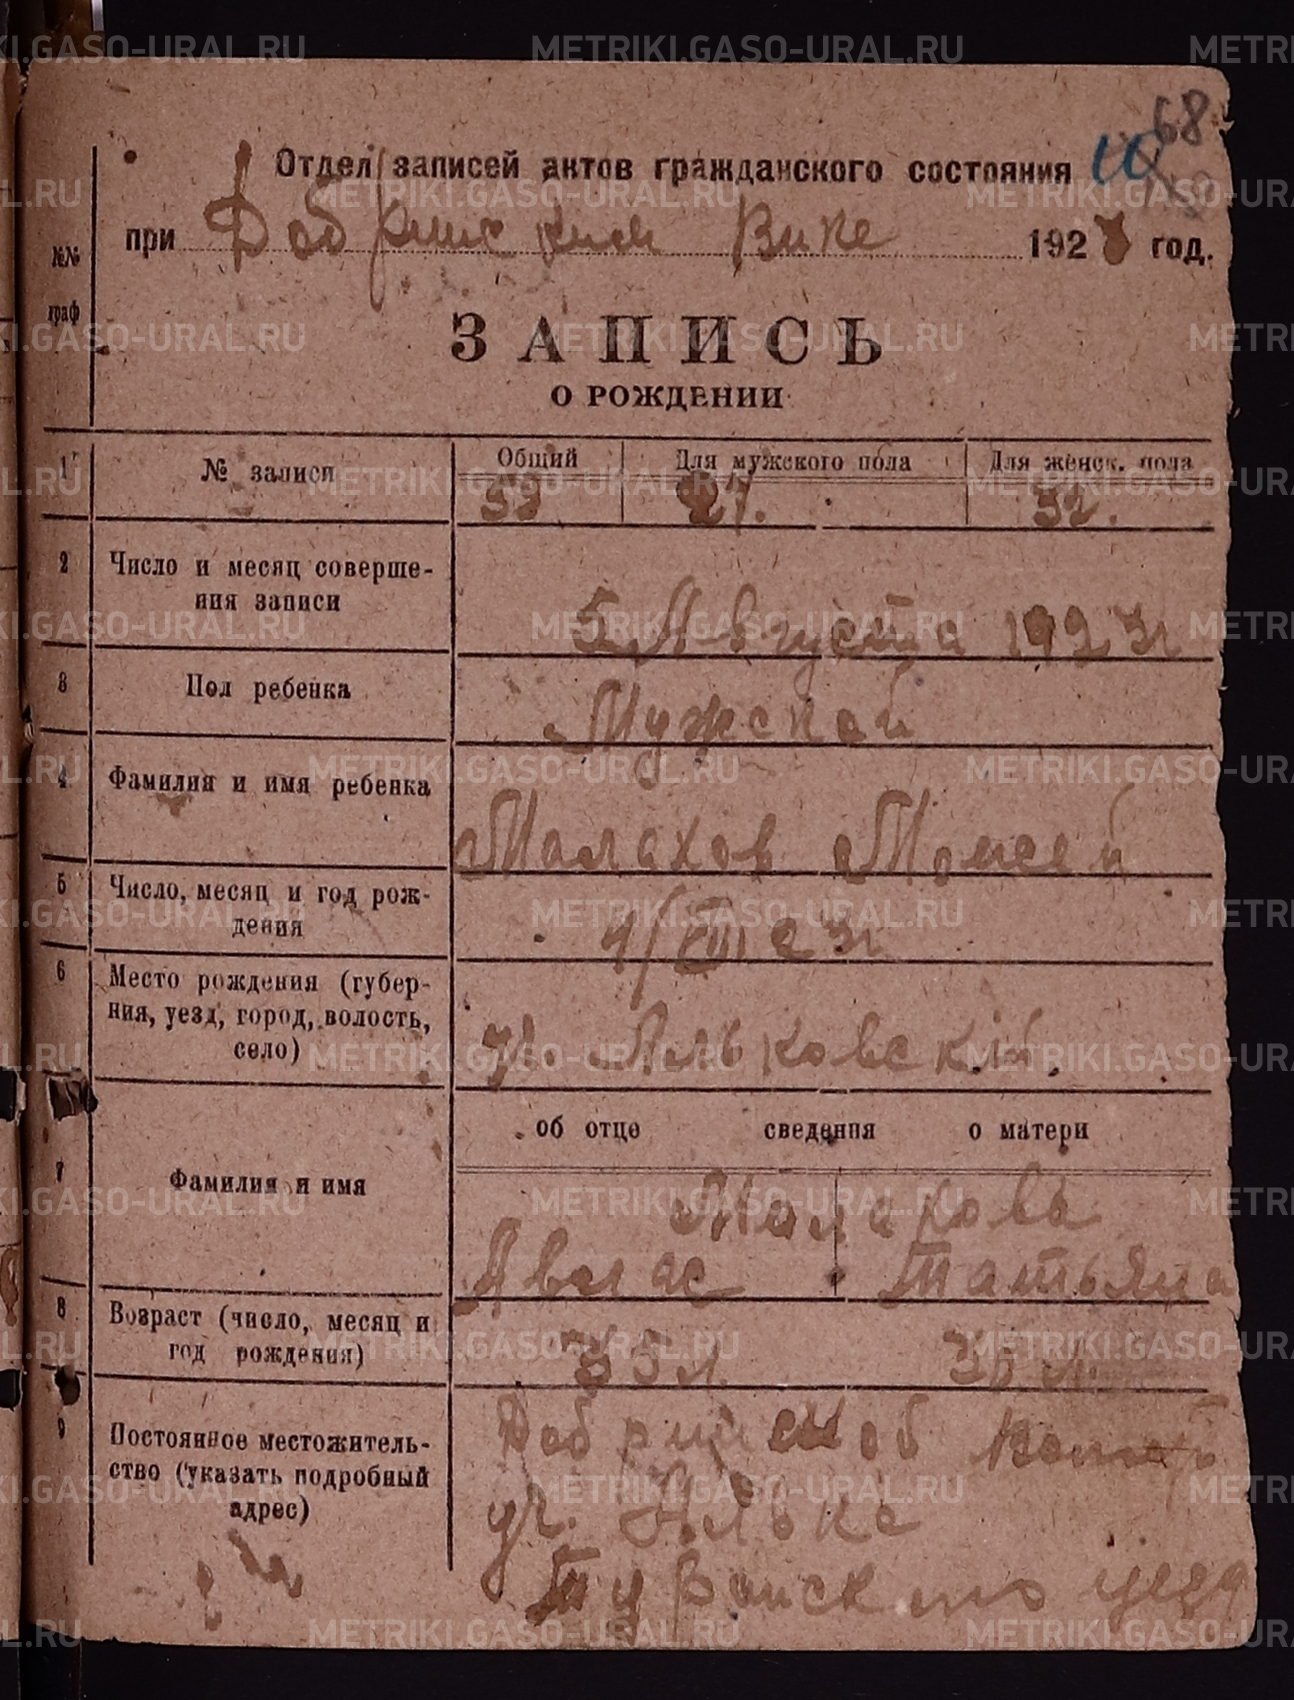 68
10
Отдел записей актов гражданского состояния
при Добринском Вике 1923 год.
№№ граф
ЗАПИСЬ
О РОЖДЕНИИ
1 № записи Общий Для мужского пола Для женск. пола
59 27. 32.
2 Число и месяц соверше-
ния записи
5 Августа 1923 г
3 Пол ребенка Мужской
4 Фамилия и имя ребенка
Малахов Моисей
5 Число, месяц и год рож-
дения
1/VIII с 23 г
6 Место рождения (губер-
ния, уезд, город, волость,
село)
уч. Яльковский
об отце сведения о матери
7 Фамилия и имя
Малаховы
Авелас Татьяна
8 Возраст (число, месяц и
год рождения)
35 л. 36 л.
9 Постоянное местожитель-
ство (указать подробный
адрес)
уч.Ялька
Туринского уезда
METRIKI.GASO-URAL.RU